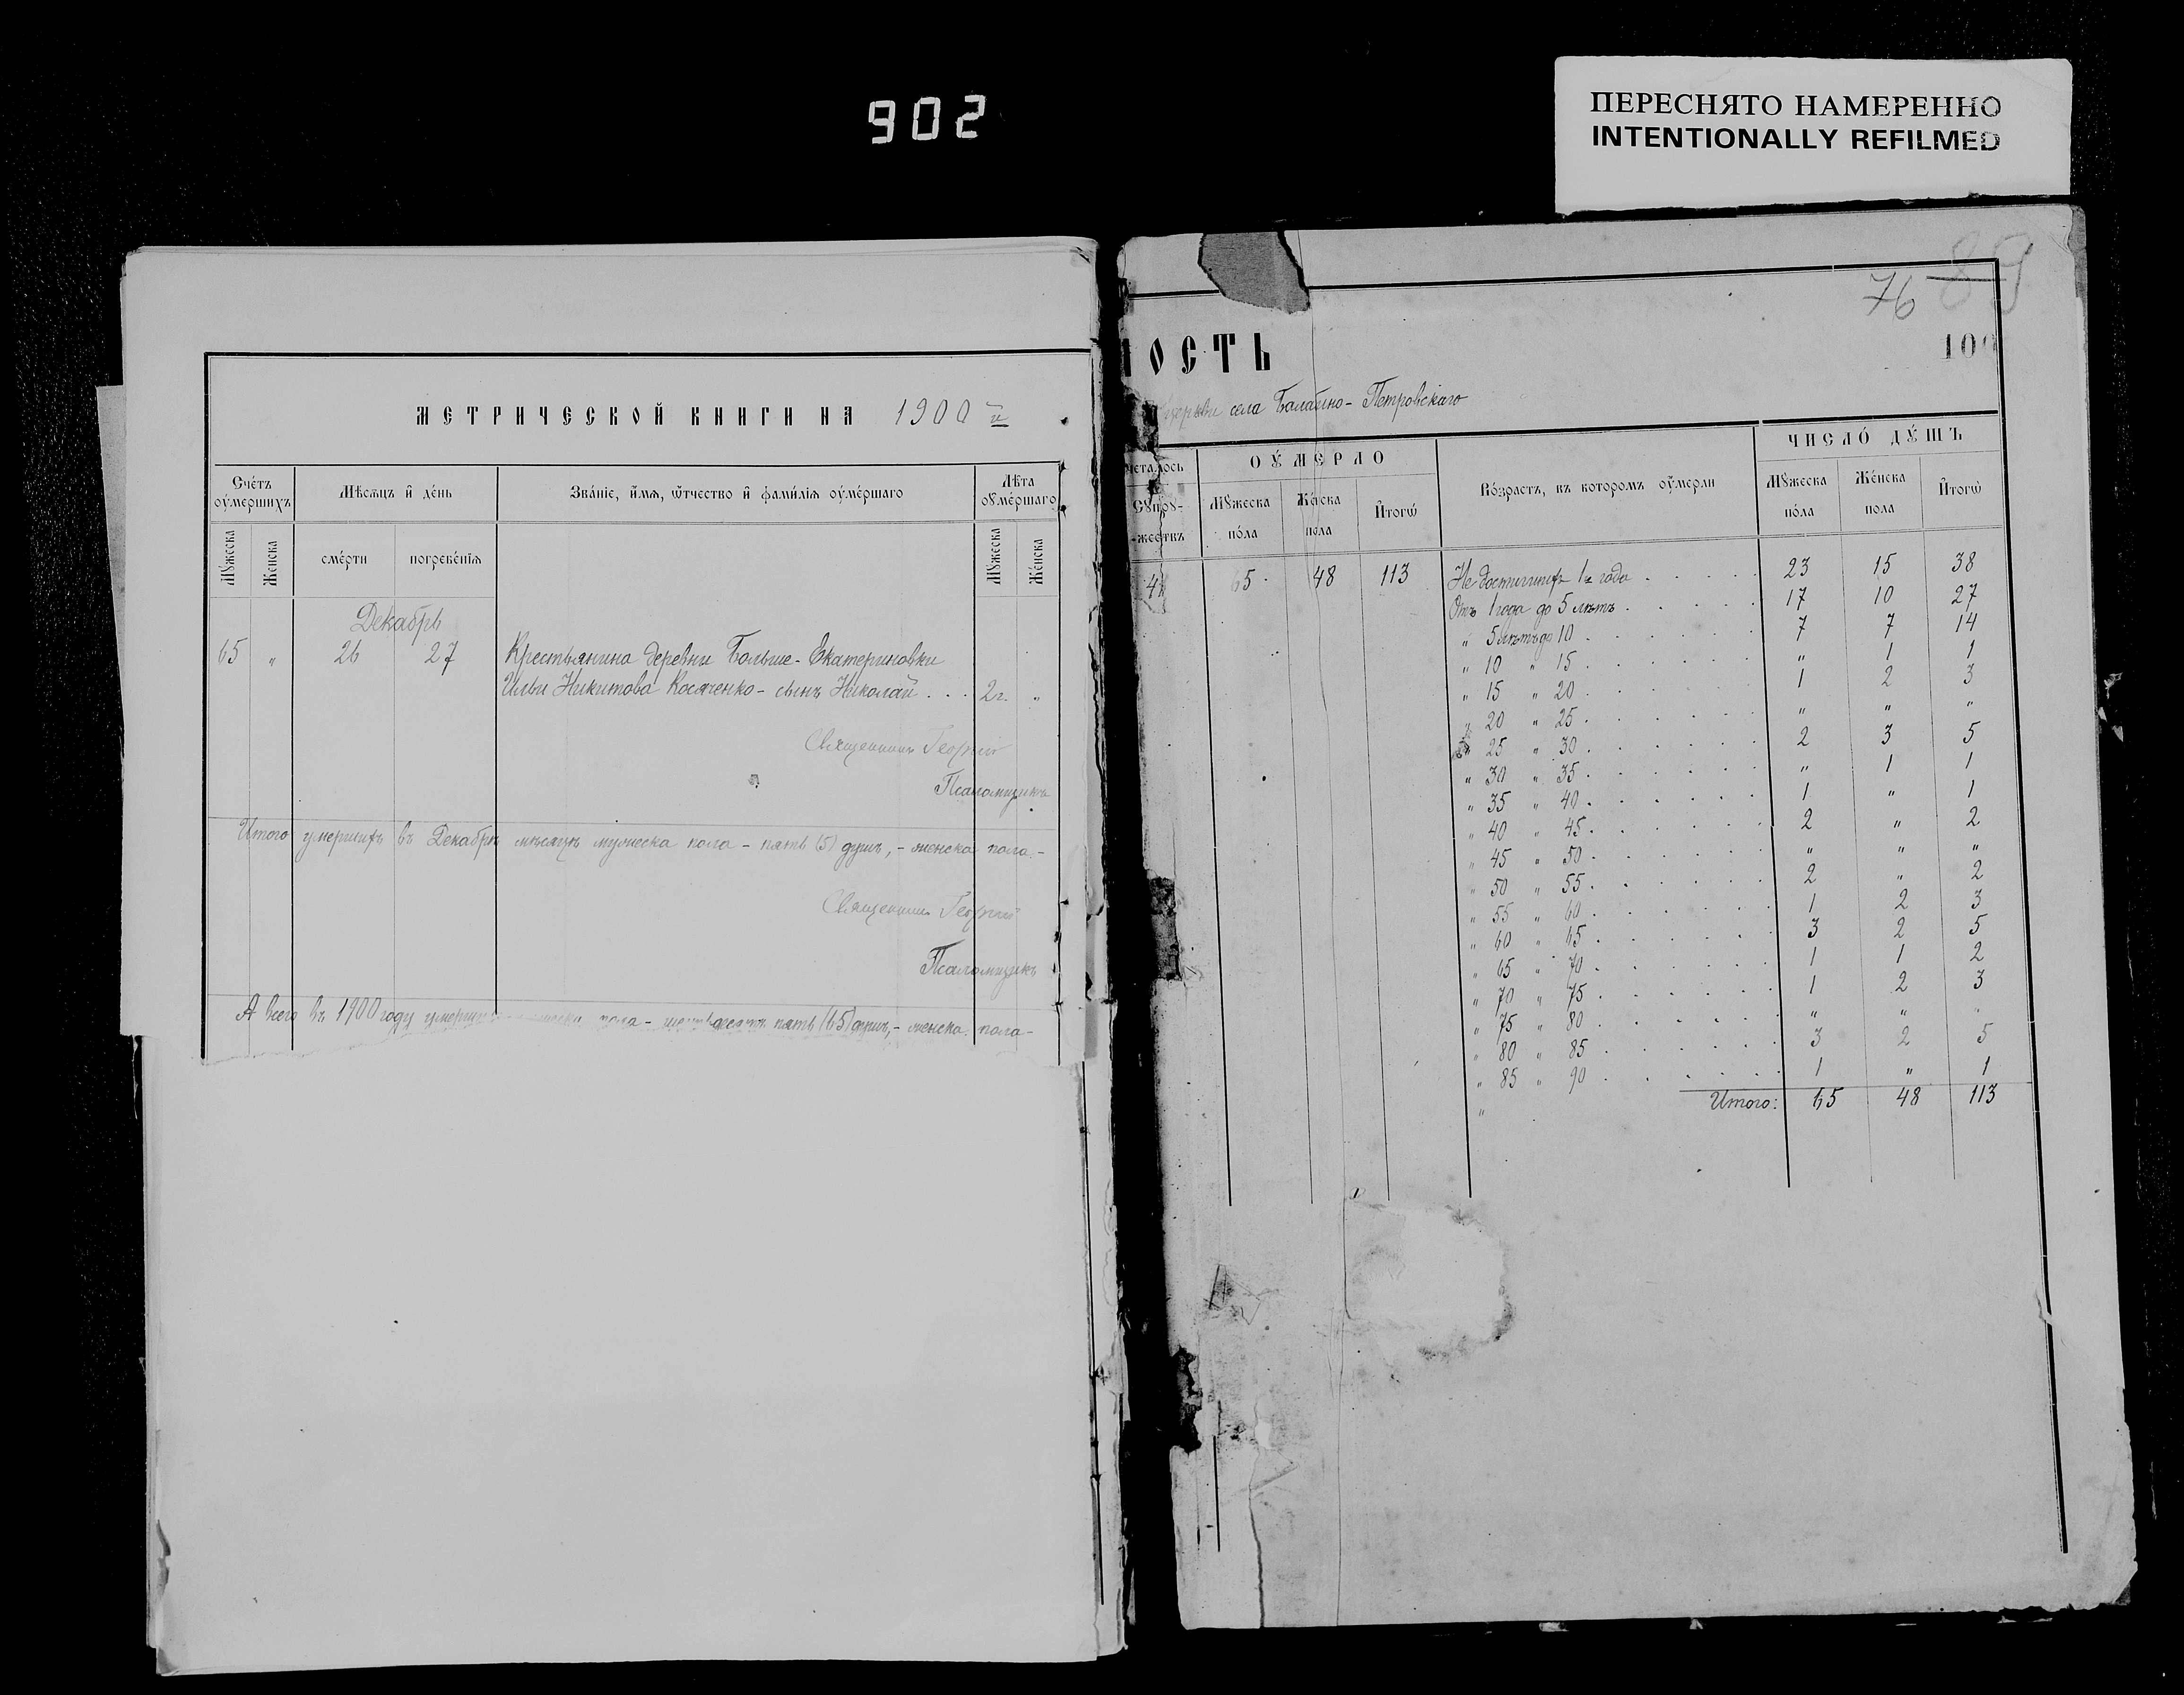 902
ПЕРЕСНЯТО НАМЕРЕННО
INTENTIONALLY REFILMED
МЕТРИЧЕСКОЙ КНИГИ НА 1900 й
Счетъ оумершихъ
Мѣсѧцъ и день
Званіе, имѧ, ѿтчество и фамиліѧ оумершаго
Лѣта оумершаго
Мужеска
Женска
смерти
погребеніѧ
Мужеска
Женска
Декабрь
65 " 26 27 Крестьянина деревни Больше-Екатериновки
Ильи Никитова Косяченко - сынъ Николай . . . 2г. "
Священникъ Георгій
Псаломщикъ
Итого умершихъ въ Декабрѣ мѣсяцѣ мужеска пола - пять (5) душъ, - женска пола -
Священникъ Георгій
Псаломщикъ
А всего въ 1900 году пола - пять (65) душъ, - женска пола -
89
76
100
НОСТЬ
церкви села Балабино-Петровскаго
четалось
Супру-
-жествъ
ОУМЕРЛО
Мужеска пола
Женска пола
Итогѡ
Возрастъ, въ которомъ оумерли
ЧИСЛО ДУШЪ
Мужеска пола
Женска пола
Итогѡ
65 48 113 Не достигшихъ 1 года . . . . . 23 15 38
Отъ 1 года до 5 лѣтъ . . . . . 17 10 27
" 5 лѣтъ до 10 . . . . . . 7 7 14
" 10 " 15 . . . . . . " 1 1
" 15 " 20 . . . . . . 1 2 3
" 20 " 25 . . . . . . " " "
" 25 " 30 . . . . . . 2 3 5
" 30 " 35 . . . . . . " 1 1
" 35 " 40 . . . . . . 1 " 1
" 40 " 45 . . . . . . 2 " 2
" 45 " 50 . . . . . . " " "
" 50 " 55 . . . . . . 2 " 2
" 55 " 60 . . . . . . 1 2 3
" 60 " 65 . . . . . . 3 2 5
" 65 " 70 . . . . . . 1 1 2
" 70 " 75 . . . . . . 1 2 3
" 75 " 80 . . . . . . " " "
" 80 " 85 . . . . . . 3 2 5
" 85 " 90 . . . . . . 1 " 1
" Итого: 65 48 113